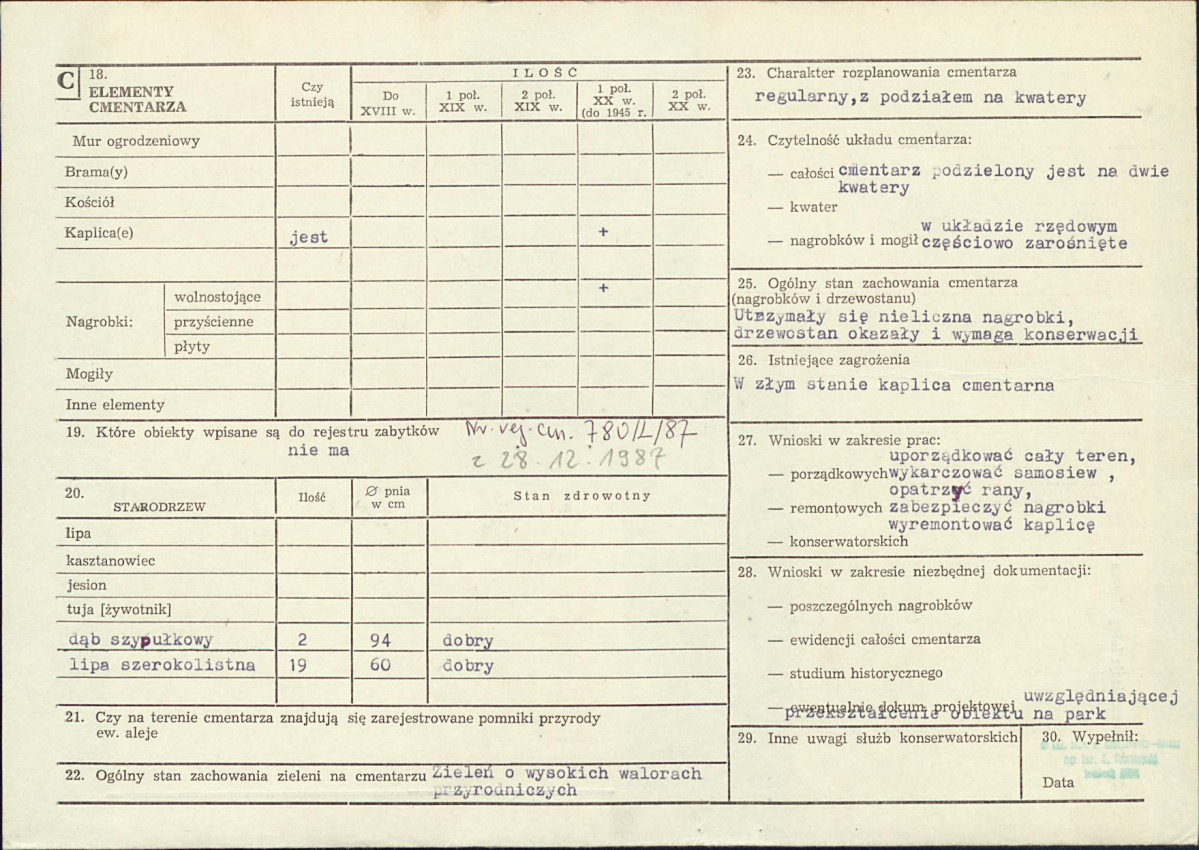 C 18.
ELEMENTY
CMENTARZA
Czy
istnieją
ILOŚĆ
Do
XVIII w.
1 poł.
XIX w.
2 poł.
XIX w.
1 poł.
XX w.
(do 1945 r.
2 poł.
XX w.
Mur ogrodzeniowy
Brama(y)
Kościół
Kaplica(e) jest +
Nagrobki:
wolnostojące +
przyścienne
płyty
Mogiły
Inne elementy
19. Które obiekty wpisane są do rejestru zabytków Nr. rej. cm. 780/L/87
nie ma z 28.12.1987
20.
STARODRZEW
Ilość
Ø pnia
w cm
Stan zdrowotny
lipa
kasztanowiec
jesion
tuja [żywotnik]
dąb szypułkowy 2 94 dobry
lipa szerokolistna 19 60 dobry
21. Czy na terenie cmentarza znajdują się zarejestrowane pomniki przyrody
ew. aleje
22. Ogólny stan zachowania zieleni na cmentarzu Zieleń o wysokich walorach
przyrodniczych
23. Charakter rozplanowania cmentarza
regularny, z podziałem na kwatery
24. Czytelność układu cmentarza:
— całości cmentarz podzielony jest na dwie
kwatery
— kwater
w układzie rzędowym
— nagrobków i mogił częściowo zarośnięte
25. Ogólny stan zachowania cmentarza
(nagrobków i drzewostanu)
Utrzymały się nieliczna nagrobki,
drzewostan okazały i wymaga konserwacji
26. Istniejące zagrożenia
W złym stanie kaplica cmentarna
27. Wnioski w zakresie prac:
uporządkować cały teren,
— porządkowych wykarczować samosiew ,
opatrzyć rany,
— remontowych zabezpieczyć nagrobki
wyremontować kaplicę
— konserwatorskich
28. Wnioski w zakresie niezbędnej dokumentacji:
— poszczególnych nagrobków
— ewidencji całości cmentarza
— studium historycznego
— ewentualnie dokum. projektowej uwzględniającej
przekształcenie obiektu na park
29. Inne uwagi służb konserwatorskich
30. Wypełnił:
Data